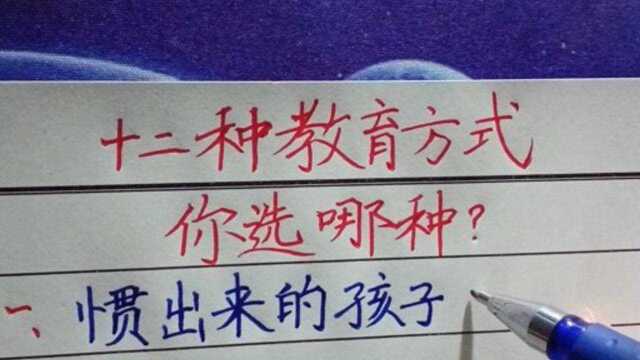 十二种教育方式
你选哪种?
一、惯出来的孩子